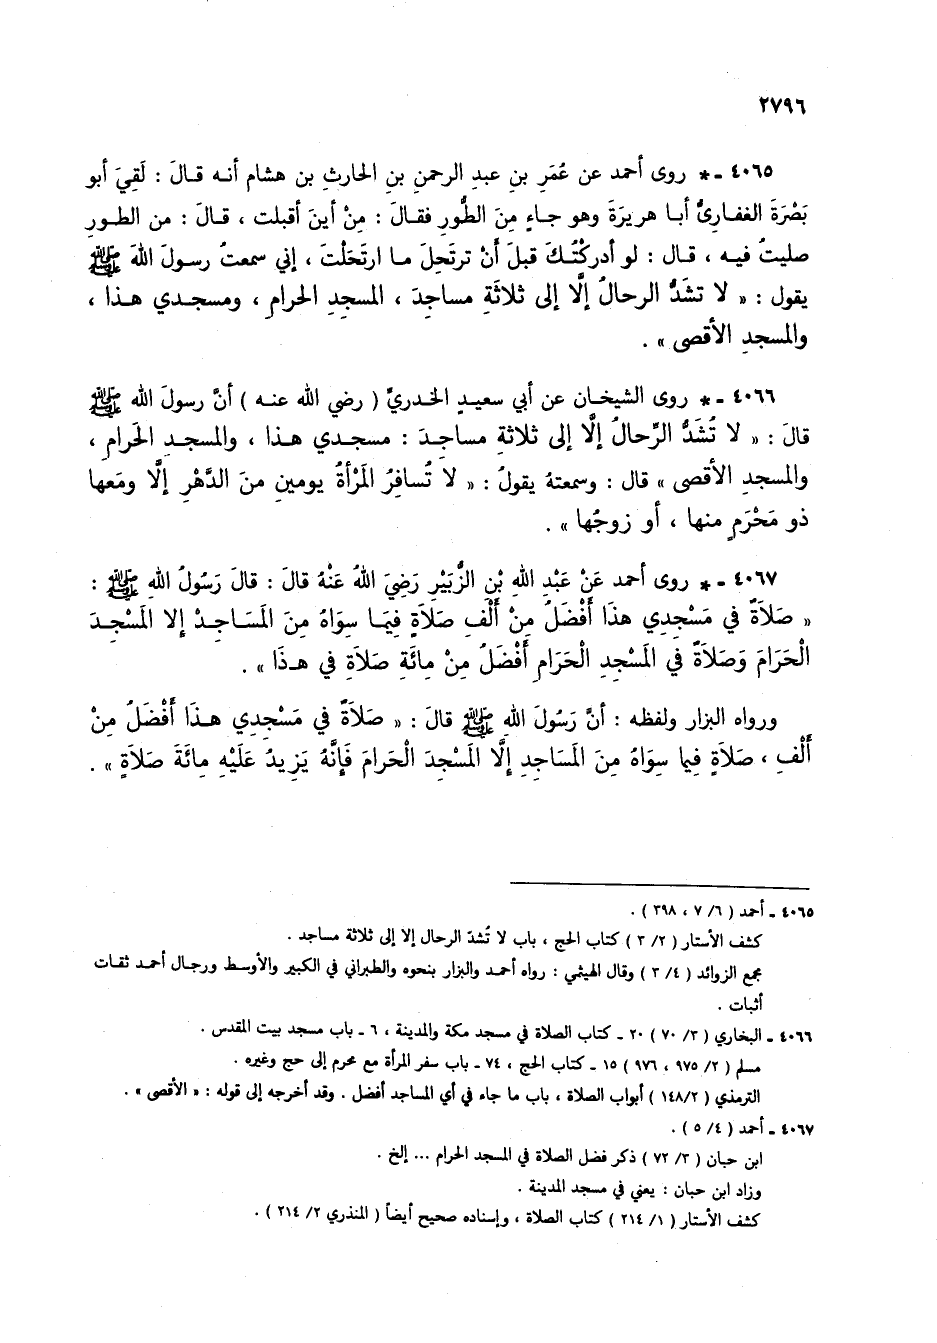 ٢٧٩٦
٤٠٦٥ ـ * روى أحمد عن عُمَرِ بنِ عبدِ الرحمنِ بنِ الحارثِ بن هشام أنه قـالَ : لَقِيَ أبو
بَصْرَةَ الغفـاريُّ أبـا هريرَةَ وهو جـاءٍ مِنَ الطُّورِ فقـالَ : مِنْ أينَ أقبلت ، قـالَ : من الطـورِ
صليتُ فيـه ، قـال : لو أدركْتُـكَ قبلَ أَنْ ترتحِلَ مـا ارتَحَلْتَ ، إني سمعتُ رسـولَ اللهَ ﷺ
يقول : « لا تشَدُّ الرحالُ إلَّا إلى ثلاثَةِ مساجِدَ ، المسجدِ الحرامِ ، ومسجـدي هـذا ،
والمسجدِ الأقصى » .
٤٠٦٦ ـ * روى الشيخـان عن أبي سعيـدٍ الخـدريِّ ( رضي الله عنـه ) أنَّ رسولَ الله ﷺ
قالَ : « لا تُشَدُّ الرِّحالُ إلَّا إلى ثلاثة مساجـدَ : مسجـدي هـذا ، والمسجـد الحَرامِ ،
والمسجدِ الأقصى » قال : وسمعتهُ يقولُ : « لا تُسافِرُ المَرْأَةُ يومينِ منَ الدَّهْرِ إلَّا ومَعها
ذو مَحْرَمٍ منها ، أو زوجُها » .
٤٠٦٧ ـ * روى أحمد عَنْ عَبْدِ اللهِ بْنِ الزُّبَيْرِ رَضِيَ اللهُ عَنْهُ قالَ : قالَ رَسُولُ اللهِ ﷺ :
« صَلاَةٌ في مَسْجِدِي هذَا أَفْضَلُ مِنْ أَلْفِ صَلاَةٍ فِيمَا سِوَاهُ مِنَ المَسَاجِـدْ إلا المَسْجِـدَ
الْحَرَامَ وَصَلاَةٌ في المَسْجِدِ الْحَرَامِ أَفْضَلُ مِنْ مِائَةِ صَلاَةٍ في هـذَا » .
ورواه البزار ولفظه : أنَّ رَسُولَ اللهِ ﷺ قالَ : « صَلاَةٌ في مَسْجِدِي هـذَا أَفْضَلُ مِنْ
أَلْفِ ، صَلاَةٍ فِيما سِوَاهُ مِنَ المَسَاجِدِ إلَّا المَسْجِدَ الْحَرَامَ فَإِنَّهُ يَزِيدُ عَلَيْهِ مِائَةَ صَلاَةٍ » .
٤٠٦٥ ـ أحمد ( ٦/ ٧ ، ٣٩٨ ) .
كشف الأستار ( ٢/ ٣ ) كتاب الحج ، باب لا تُشدّ الرحال إلا إلى ثلاثة مساجد .
مجمع الزوائد ( ٤/ ٣ ) وقال الهيثمي : رواه أحمـد والبزار بنحوه والطبراني في الكبير والأوسط ورجـال أحمـد ثقـات
أثبات .
٤٠٦٦ ـ البخاري ( ٣/ ٧٠ ) ٢٠ ـ كتاب الصلاة في مسجد مكة والمدينة ، ٦ ـ باب مسجد بيت المقدس .
مسلم ( ٢/ ٩٧٥ ، ٩٧٦ ) ١٥ ـ كتاب الحج ، ٧٤ ـ باب سفر المرأة مع محرم إلى حج وغيره .
الترمذي ( ٢/١٤٨ ) أبواب الصلاة ، باب ما جاء في أي المساجد أفضل . وقد أخرجه إلى قوله : « الأقصى » .
٤٠٦٧ ـ أحمد ( ٤/ ٥ ) .
ابن حبان ( ٣/ ٧٢ ) ذكر فضل الصلاة في المسجد الحرام ... إلخ .
وزاد ابن حبان : يعني في مسجد المدينة .
كشف الأستار ( ١/ ٢١٤ ) كتاب الصلاة ، وإسناده صحيح أيضاً ( المنذري ٢/ ٢١٤ ) .